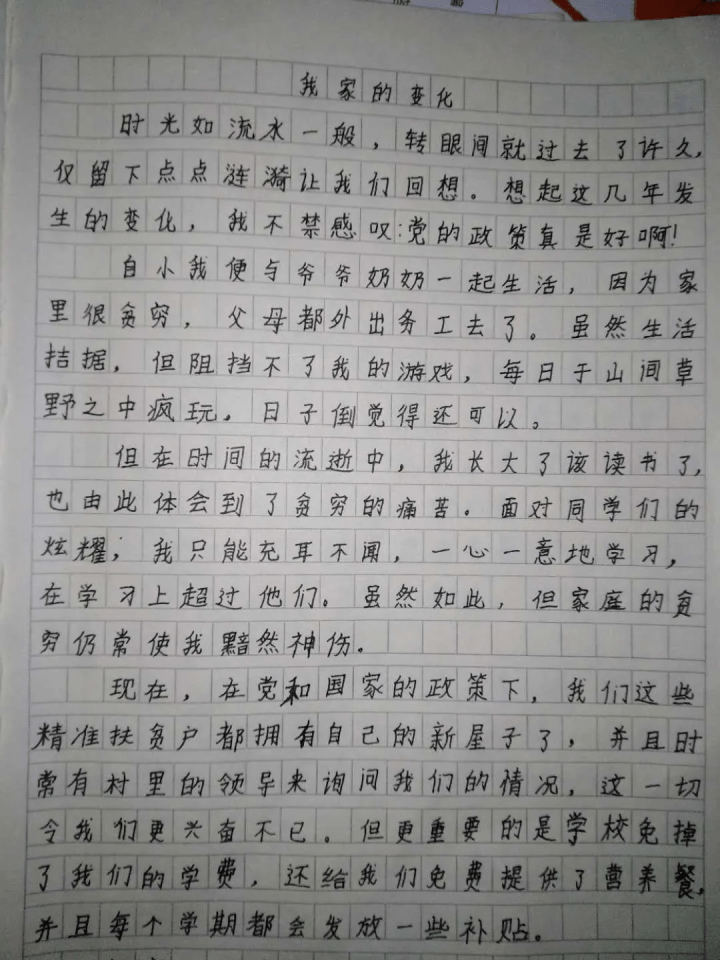 我家的变化
时光如流水一般，转眼间就过去了许久，
仅留下点点涟漪让我们回想。想起这几年发
生的变化，我不禁感叹：党的政策真是好啊！
自小我便与爷爷奶奶一起生活，因为家
里很贫穷，父母都外出务工去了。虽然生活
拮据，但阻挡不了我的游戏，每日于山间草
野之中疯玩，日子倒觉得还可以。
但在时间的流逝中，我长大了该读书了，
也由此体会到了贫穷的痛苦。面对同学们的
炫耀，我只能充耳不闻，一心一意地学习，
在学习上超过他们。虽然如此，但家庭的贫
穷仍常使我黯然神伤。
现在，在党和国家的政策下，我们这些
精准扶贫户都拥有自己的新屋子了，并且时
常有村里的领导来询问我们的情况，这一切
令我们更兴奋不已。但更重要的是学校免掉
了我们的学费，还给我们免费提供了营养餐，
并且每个学期都会发放一些补贴。